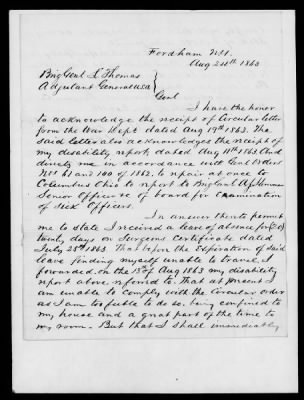 Fordham N.Y.
Aug 24th 1863
Brig Genl L Thomas
Adjutant General U.S.A
Genl
I have the honor
to acknowledge the receipt of Circular letter
from the War Dept dated Aug 19th 1863. The
said letter also acknowledges the receipt of
my disability report, dated Aug 11th 1863 and
directs me in accordance with Genl Orders
Nos 61 and 100 of 1862, to repair at once to
Columbus Ohio to report to Brig Genl
Senior Officer of board for examination
of Sick Officers.
In answer thereto permit
me to state I received a leave of absence for (20)
twenty days on Surgeons Certificate dated
July 28th 1863. That before the Expiration of said
leave finding myself unable to travel, I
forwarded on the of Aug 1863 my disability
report above referred to. That at present I
am unable to comply with the Circular order
as I am too feeble to do so, being confined to
my house and a great part of the time to
my room. But that I shall immediately